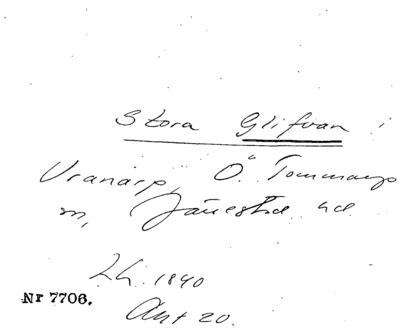 Stora Glifvan i
Vranarp, Ö. Tommarp
m, Järrestad hd
Lh. 1840
Nr 7706.
Akt 20.